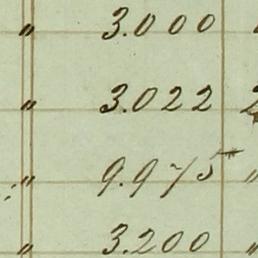 " 3.000
" 3.022 2
" 9.975 "
" 3.200 "